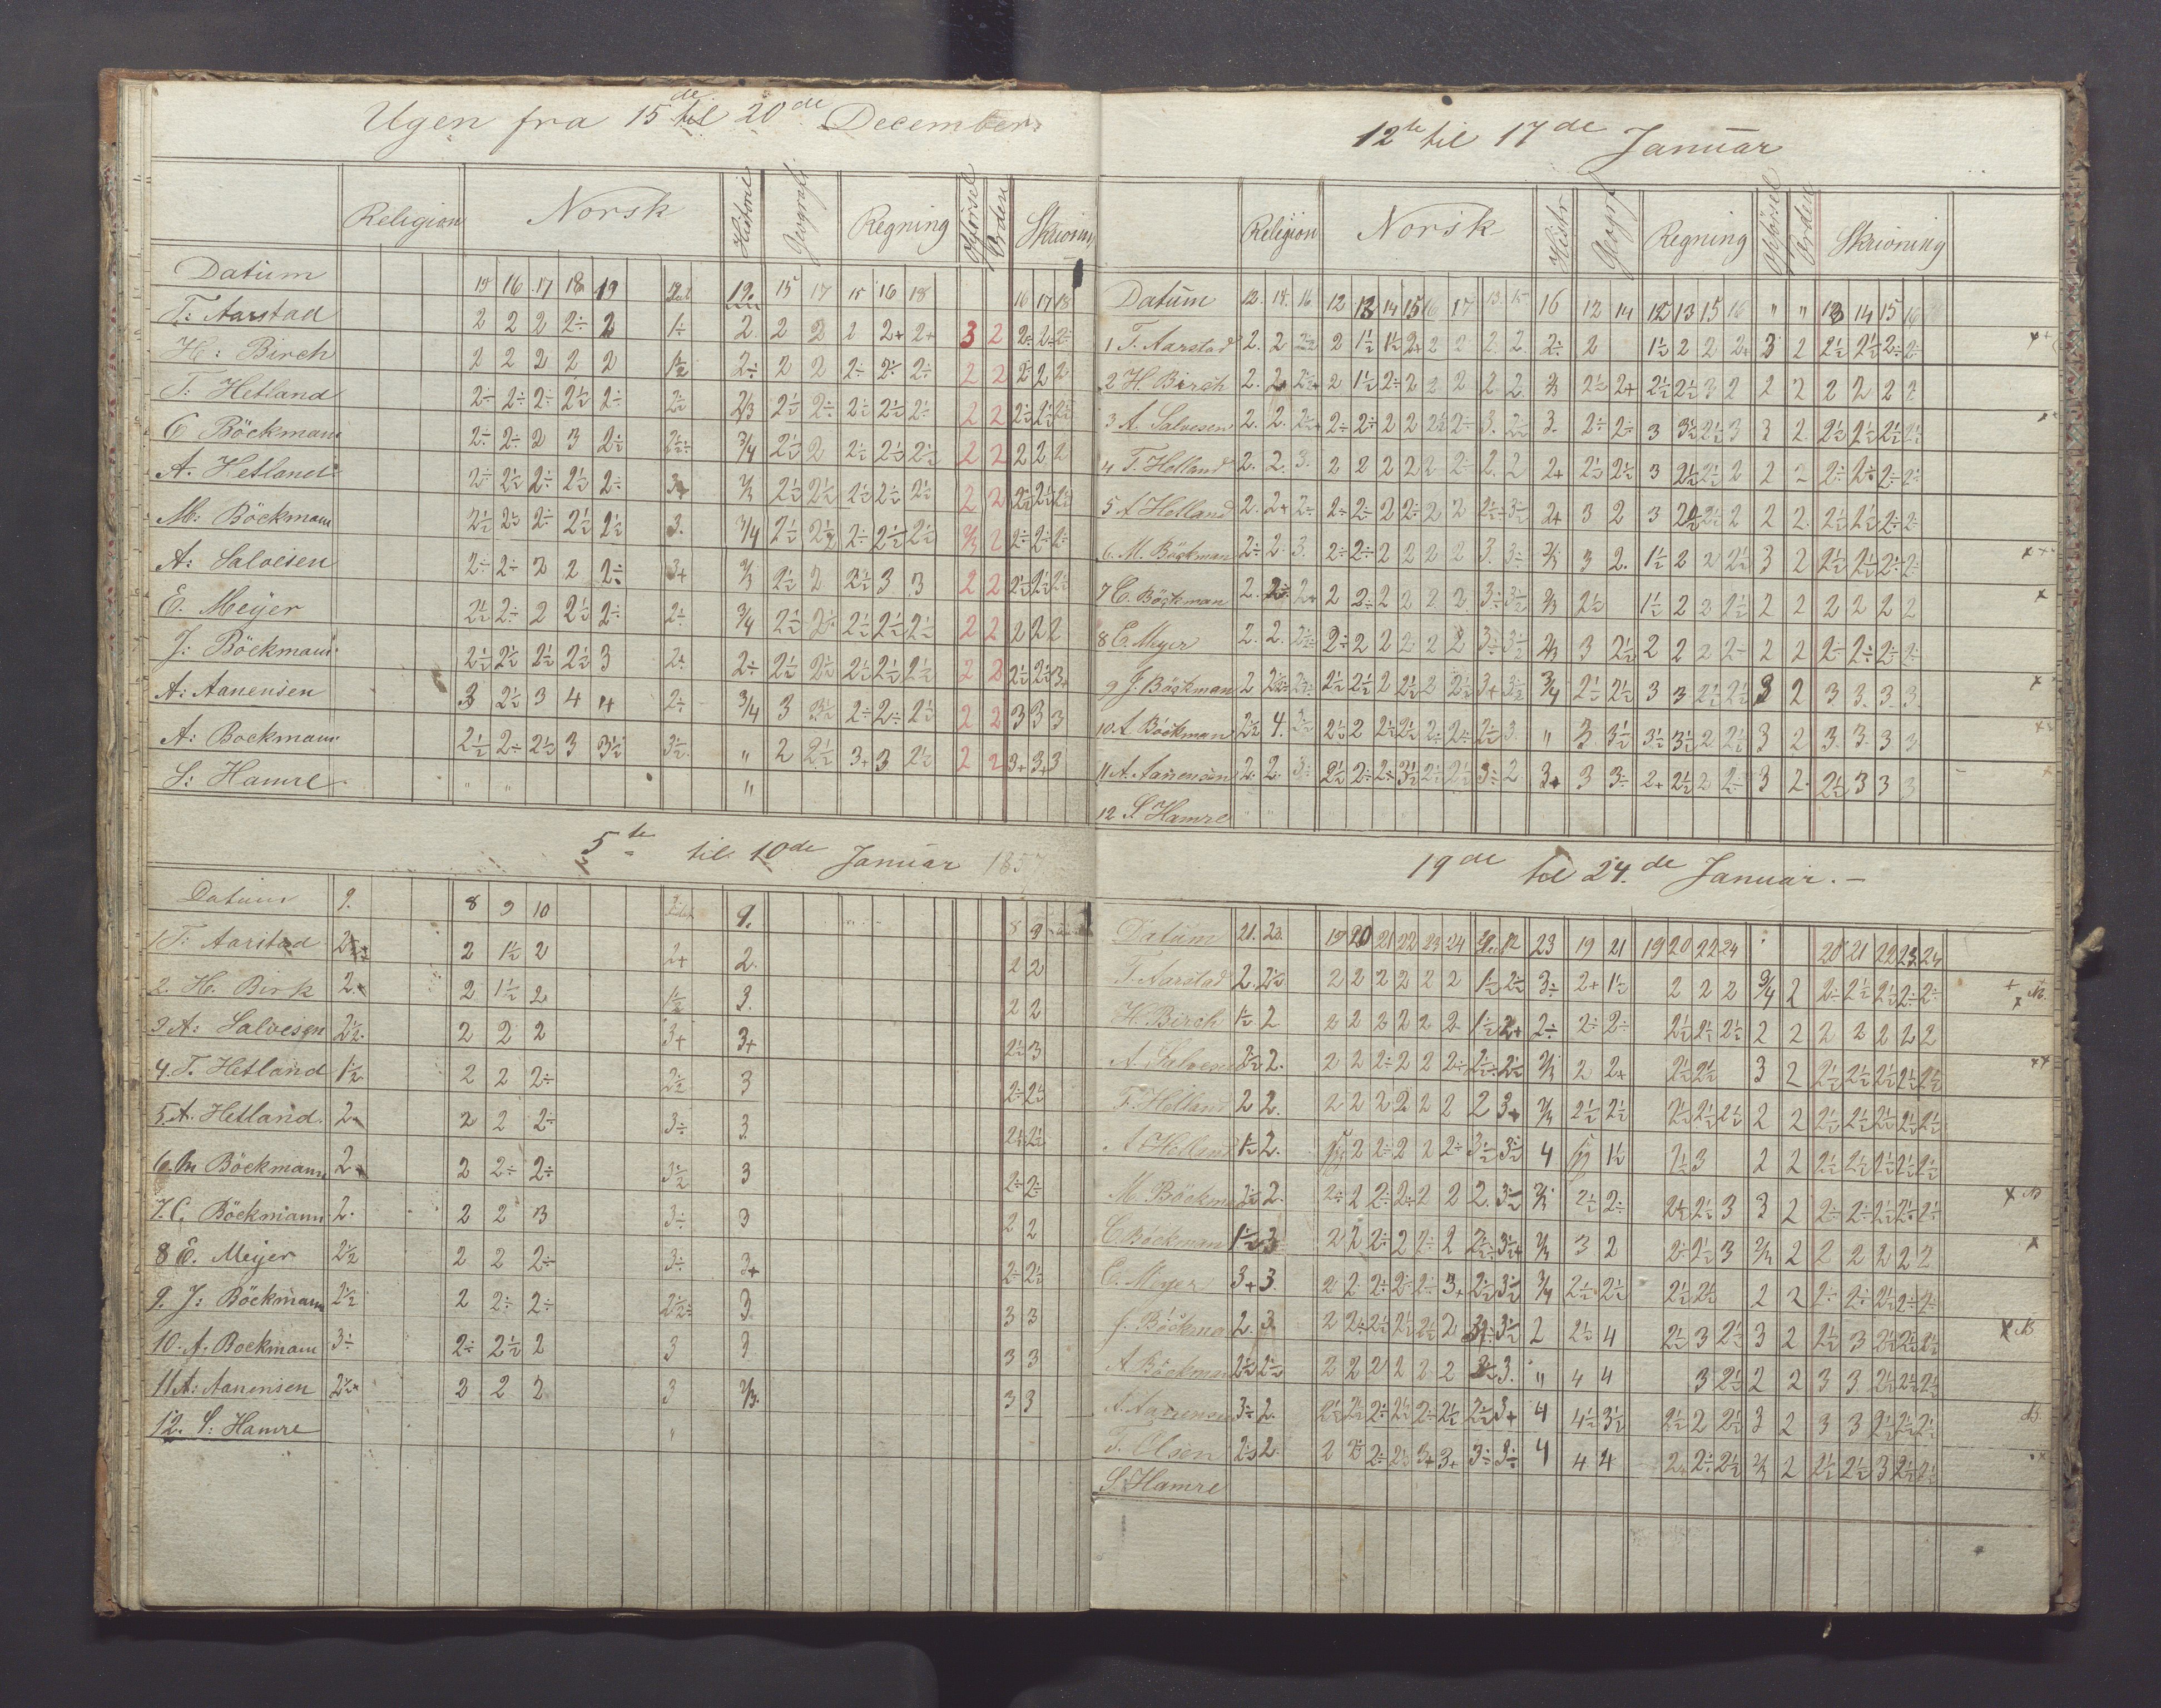 Ugen fra 15de til 20de December.
Religion Norsk Historie Geografi Regning Opførsel Orden Skrivning
Datum 15 16 17 18 19 19. 15 17 15 16 18 16 17 18
T: Aarstad 2 2 2 2÷ 2 1÷ 2. 2 2 2 2+ 2+ 3 2 2÷ 2÷ 2÷
H: Birch 2 2 2 2 2 1½ 2÷ 2 2 2÷ 2÷ 2÷ 2 2 2÷ 2 2
T: Hetland 2÷ 2÷ 2÷ 2½ 2÷ 2½ 2/3 2½ 2÷ 2½ 2½ 2½ 2 2 2½ 2½ 2½
C Böckmann 2÷ 2÷ 2 3 2½ 2½÷ 3/4 2½ 2 2½ 2½ 2½ 2 2 2 2 2
A. Hetland 2÷ 2½ 2÷ 2½ 2÷ 2/3 2½ 2½ 2½ 2½ 2½ 2 2 2½ 2½ 2½
M: Böckmann 2½ 2½ 2÷ 2½ 2½ 3. 3/4 2½ 2½ 2÷ 2½ 2½ 2/3 2 2÷ 2÷ 2÷
A: Salvesen 2÷ 2÷ 2 2 2÷ 3+ 2/3 2½ 2 2½ 3 3 2 2 2½ 2½ 2½
E. Meyer 2½ 2÷ 2 2½ 2÷ 2÷ 3/4 2½ 2½ 2½ 2½ 2½ 2 2 2 2 2
J: Böckmann 2½ 2½ 2½ 2½ 3 2÷ 2÷ 2½ 2½ 2½ 2½ 2½ 2 2 2½ 2½ 3+
A: Aanensen 3 2½ 3 4 4 2÷ 3/4 3 3½ 2÷ 2÷ 2½ 2 2 3 3 3
A: Bockmann 2½ 2÷ 2½ 3 3½ 3½. " 2 2½ 3+ 3 2½ 2 2 3+ 3+ 3
S: Hamre " " "
5te til 10de Januar
Datum 9. 8 9 10 9. 8 9
1 T: Aarstad 2 1½ 2 2+ 2. 2 2
2. H. Birk 2. 2 1½ 2 1½ 3. 2 2
3 A: Salvesen 2½. 2 2 2 3+ 3+ 2½ 3
4. T. Hetland 1½ 2 2 2÷ 2½ 3 2÷ 2½
5 A. Hetland. 2 2 2 2÷ 3÷ 3. 2½ 2½
6. M Böckmann 2 2 2÷ 2÷ 3½ 3 2÷ 2÷
7. C. Böckmann 2. 2 2 3 3÷ 3 2 2
8 E. Meyer 2½ 2 2 2÷ 3÷ 3+ 2÷ 2½
9. J: Böckmann 2½ 2 2÷ 2÷ 2½÷ 3 3 3
10. A. Bockmann 3÷ 2÷ 2½ 2 3 3 3 3
11 A: Aanensen 2½ 2 2 2 3 2/3. 3 3
12. S: Hamre "
12te til 17de Januar
Religion Norsk Histor. Geograf Regning Opförsel Orden Skrivning
Datum 12. 14. 16. 12 13 14 15 16 17 13. 15 16 12 14 12 13 15 16 " " 13 14 15 16
1 T. Aarstad 2. 2 2 1½ 1½ 2+ 2 2 2. 2. 2÷ 2 1½ 2 2 2+ 3 2 2½ 2½ 2÷ 2÷
2 H. Birch 2. 2 2½+ 2 1½ 2÷ 2 2 2 2. 2. 2/3 2½ 2+ 2½ 2½ 3 2 2 2 2 2 2 2
3 A. Salvesen 2. 2. 2½+ 2÷ 2÷ 2 2 2½ 2÷ 3. 2½ 3. 2÷ 2÷ 3 3½ 2½ 3 3 2. 2½ 2½ 2½ 2½
4 T. Hetland 2. 2. 3. 2 2 2 2 2 2÷ 2. 2 2+ 2½ 2½ 3 2½ 2½ 2 2 2 2÷ 2÷ 2÷ 2÷
5 A Hetland 2. 2+ 2÷ 2÷ 2÷ 2 2÷ 2 2 2½÷ 3½ 2+ 3 2 3 2½ 2½ 2 2 2. 2½ 2½ 2÷ 2÷
6. M. Böckman 2÷ 2. 3. 2÷ 2÷ 2 2 2 2 3. 3÷ 2/3 3 2. 1½ 2 2 2½ 3 2 2½ 2½ 2÷ 2÷
7 C. Böckman 2. 2÷ 2+ 2 2÷ 2 2 2 2 3÷ 3½ 2/3 2½ 1½ 2 2 2½ 2 2 2 2 2 2
8 E. Meyer 2. 2. 2½÷ 2÷ 2 2 2 2 2 3÷ 3½ 2/3 3 2½ 2 2 2 2÷ 2 2 2÷ 2÷ 2÷ 2÷
9 J. Böckman 2 2½ 2½ 2½ 2½ 2 2½ 2 2½ 3+ 3½ 3/4 2½ 2½ 3 3 2½ 2½ 3 2 3. 3. 3. 3.
10. A. Böckman 2½ 4. 3½ 2½ 2 2½ 2½ 2÷ 2÷ 2½ 3. " 3. 3½ 3½ 3½ 2 2½ 3 2 3. 3. 3 3
11 A. Aanensen 2. 2. 3÷ 2½ 2÷ 2÷ 3½ 2½ 2½ 3÷ 2 3+ 3 3÷ 2+ 2½ 2 2÷ 3 2. 2½ 3 3 3
12 S. Hamre
19de til 24.de Januar.
Datum 21. 23. 19 20 21 22 23 24 23 19 21 19 20 22 24 20 21 22 23 24
T. Aarstad 2. 2½ 2 2 2 2 2 2 1½ 2½ 3÷ 2+ 1½ 2 2 2 3/4 2 2÷ 2½ 2½ 2÷ 2÷
H. Birch 1½ 2 2 2 2 2 2 2 1½ 2+ 2÷ 2÷ 2÷ 2½ 2½ 2½ 2 2 2 2 2 2 2
A. Salvesen 2. 2 2 2÷ 2 2 2÷ 2½ 2½ 2/3 2 2+ 2½ 2½ 3 2 2½ 2½ 2½ 2½ 2½
T. Hetland 2 2. 2 2 2 2 2 2 2 3+ 2/3 2½ 2½ 2½ 2½ 2½ 2 2 2½ 2½ 2½ 2½ 2½
A Hetland 1½ 2. 2 2÷ 2 2 2÷ 3½ 3½ 4 1½ 2½ 3 2 2 2½ 2½ 2½ 2½ 2½
M. Böckman 2. 2÷ 2 2÷ 2÷ 2 2 2. 3½ 2/3 2½ 2÷ 2½ 2½ 3 3 2 2÷ 2÷ 2½ 2½ 2½
C Böckman 1½ 3 2 2 2÷ 2 2÷ 2 2½ 3½+ 2/3 3 2 2÷ 2½ 3 2/3 2 2 2 2 2 2
E. Meyer 3+ 3. 2 2 2÷ 2÷ 2÷ 3+ 2½ 3½ 3/4 2½ 2½ 2½ 2½ 2 2 2÷ 2÷ 2½ 2÷ 2÷
J. Böckman 2. 3. 2 2÷ 2½ 2½ 2½ 2 3½ 2 2½ 4 2½ 3 2½ 3 2 2½ 3 2½ 2½ 2½
A Böckman 2½ 2½ 2 2 2 2 2 2 3. " 4 4 3 2½ 2 2 3 3 2½ 2½ 2½
A. Aanensen 3÷ 2. 2½ 2½ 2÷ 2½ 2÷ 2½ 2½ 3+ 4 4½ 3½ 2½ 2 2½ 3 2 3 3 2½ 2½ 2½
T. Olsen 2½ 2. 2 2÷ 2÷ 2½ 3+ 3+ 3÷ 3÷ 4 4 4 2+ 2÷ 2½ 2/3 2 2½ 2½ 3 2½ 2½
S. Hamre